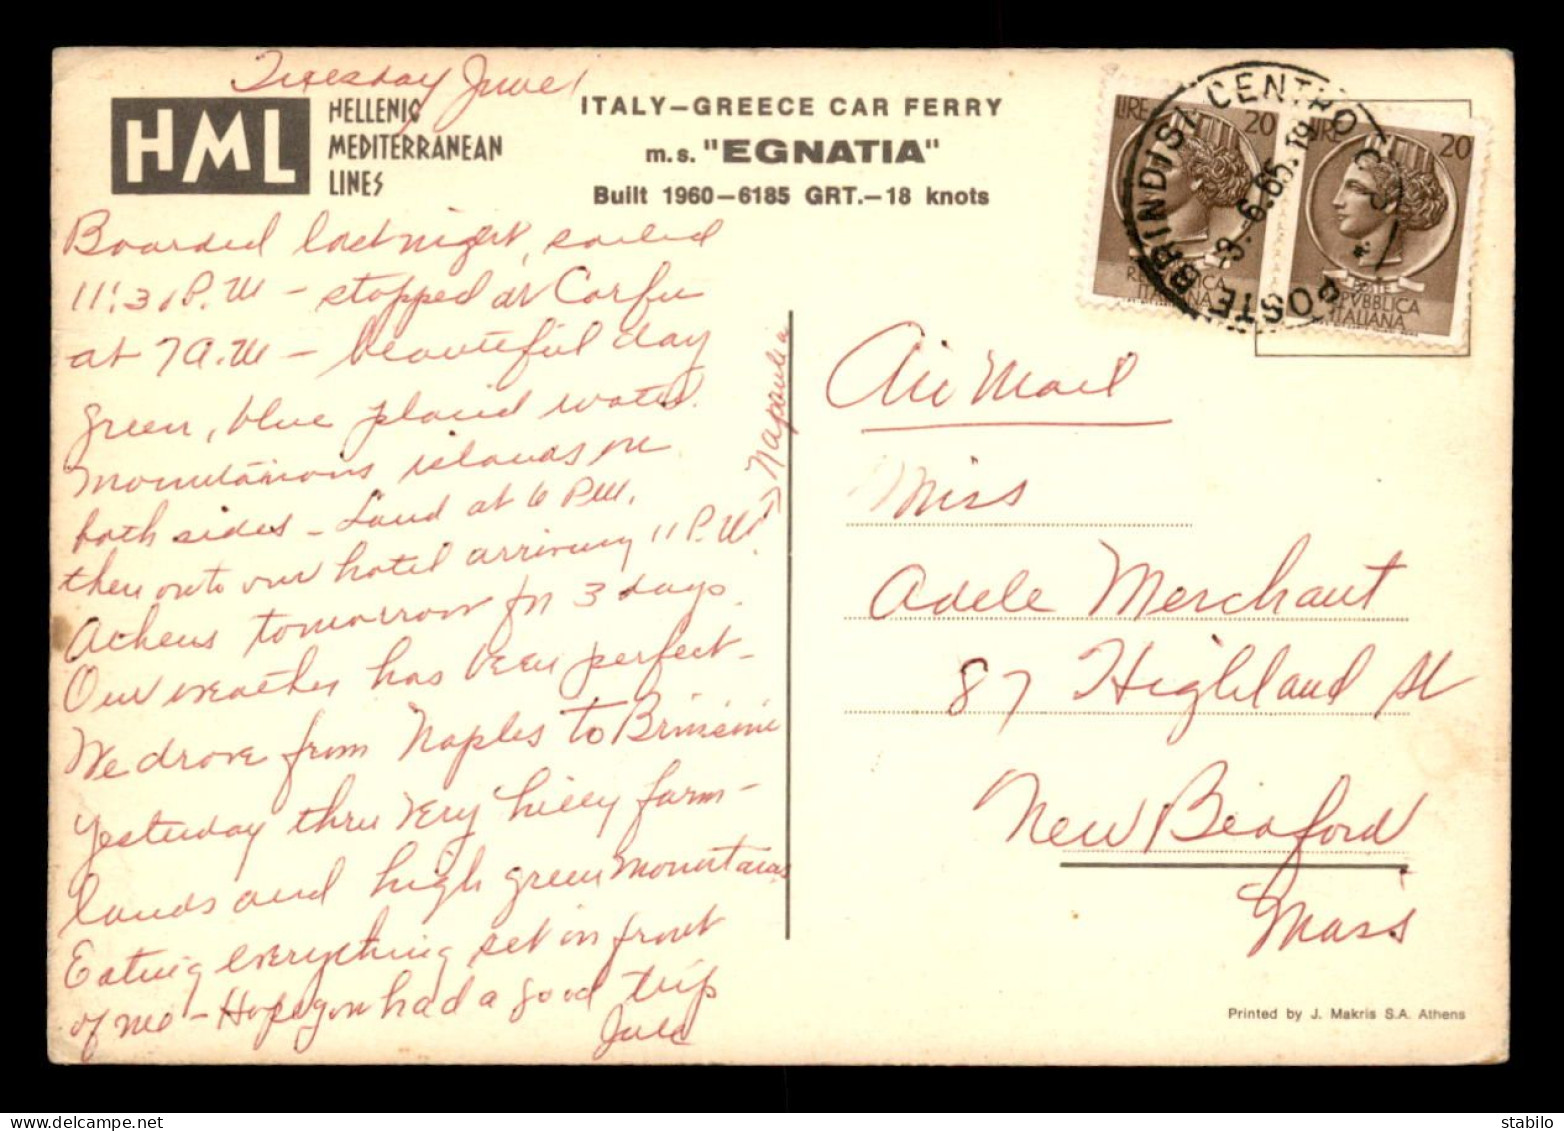 Tuesday June 1
HML
HELLENIC
MEDITERRANEAN
LINES
ITALY–GREECE CAR FERRY
m.s. "EGNATIA"
Built 1960–6185 GRT.–18 knots
Boarded last night, sailed
11:31 P.M – stopped at Corfu
at 7 A.M – beautiful day
green, blue placid water.
Mountainous islands on
both sides – Land at 6 P.M.
then onto our hotel arriving 11 P.M.
Athens tomorrow for 3 days.
Our weather has been perfect –
We drove from Naples to Brindisi
yesterday thru very hilly farm-
lands and high green mountains
Eating everything set in front
of me – Hope you had a good trip
LIRE 20
LIRE 20
POSTE
REPVBBLICA
ITALIANA
REPVBBLICA
ITALIANA
POSTE BRINDISI CENTRO
3.-6.65.19
Air Mail
Miss
Adele Merchant
87 Highland St
New Bedford
Mass
Printed by J. Makris S.A. Athens
stabilo